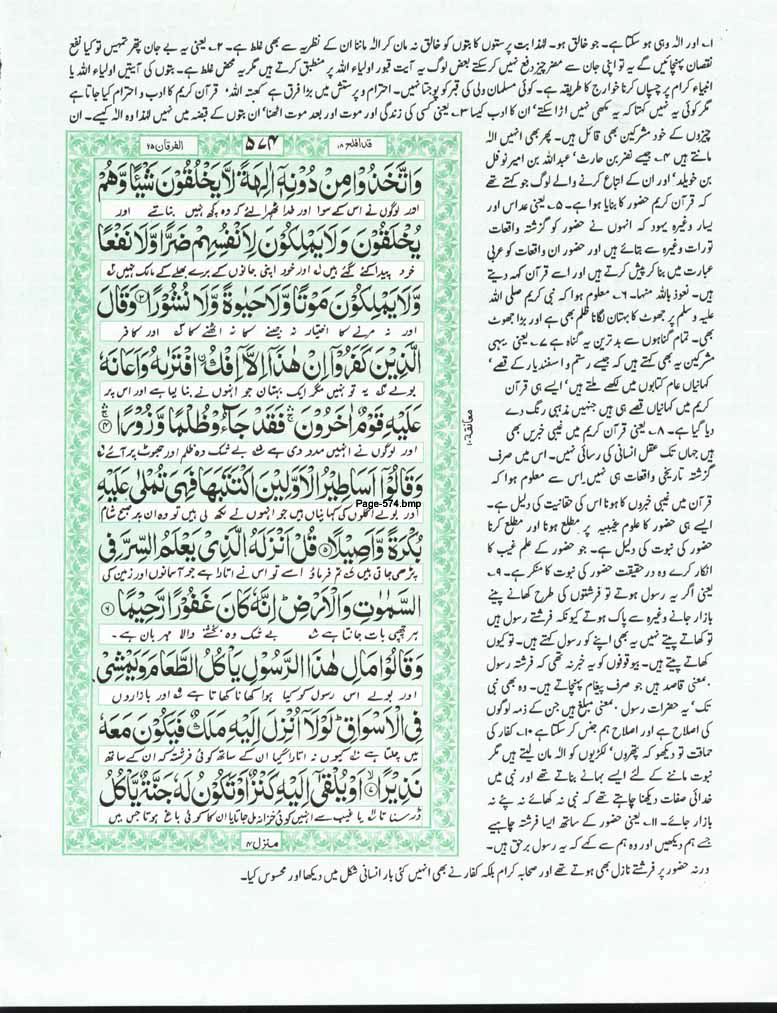 ۱۔ اور الٰہ وہی ہو سکتا ہے۔ جو خالق ہو۔ لہٰذا بت پرستوں کا بتوں کو خالق نہ مان کر الٰہ ماننا ان کے نظریہ سے بھی غلط ہے۔ ۲۔ یعنی یہ بے جان پتھر تمہیں تو کیا نفع
نقصان پہنچائیں گے یہ تو اپنی جان سے مضر چیز دفع نہیں کر سکتے بعض لوگ یہ آیت قبور اولیاء اللہ پر منطبق کرتے ہیں مگر یہ محض غلط ہے۔ بتوں کی آیتیں اولیاء اللہ یا
انبیاء کرام پر چسپاں کرنا خوارج کا طریقہ ہے۔ کوئی مسلمان ولی کی قبر کو پوجتا نہیں۔ احترام و پرستش میں بڑا فرق ہے ' کعبۃ اللہ ' قرآن کریم کا ادب و احترام کیا جاتا ہے
مگر کوئی یہ نہیں کہتا کہ یہ مکھی نہیں اڑا سکتے ' ان کا ادب کیسا ۳۔ یعنی کسی کی زندگی اور موت اور بعد موت اٹھنا ' ان بتوں کے قبضہ میں نہیں لہٰذا وہ الٰہ کیسے۔ ان
چیزوں کے خود مشرکین بھی قائل ہیں۔ پھر بھی انہیں الٰہ
مانتے ہیں ۴۔ جیسے نضر بن حارث ' عبداللہ بن امیر نوفل
بن خویلد ' اور ان کے اتباع کرنے والے لوگ جو کہتے تھے
کہ قرآن کریم حضور کا بنایا ہوا ہے۔ ۵۔ یعنی عداس اور
یسار وغیرہ یہود کہ انہوں نے حضور کو گزشتہ واقعات
تورات وغیرہ سے بتائے ہیں اور حضور ان واقعات کو عربی
عبارت میں بنا کر پیش کرتے ہیں اور اسے قرآن کہہ دیتے
ہیں۔ نعوذ باللہ منہا۔ ۶۔ معلوم ہوا کہ نبی کریم صلی اللہ
علیہ وسلم پر جھوٹ کا بہتان لگانا ظلم بھی ہے اور بڑا جھوٹ
بھی۔ تمام گناہوں سے بدترین یہ گناہ ہے ۷۔ یعنی یہی
مشرکین یہ بھی کہتے ہیں کہ جیسے رستم و اسفندیار کے قصے '
کہانیاں عام کتابوں میں لکھے ملتے ہیں ' ایسے ہی قرآن
کریم میں کہانیاں قصے ہی ہیں جنہیں مذہبی رنگ دے
دیا گیا ہے۔ ۸۔ یعنی قرآن کریم میں غیبی خبریں بھی
ہیں جہاں تک عقل انسانی کی رسائی نہیں۔ اس میں صرف
گزشتہ تاریخی واقعات ہی نہیں۔ اس سے معلوم ہوا کہ
قرآن میں غیبی خبروں کا ہونا اس کی حقانیت کی دلیل ہے۔
ایسے ہی حضور کا علوم غیبیہ پر مطلع ہونا اور مطلع کرنا
حضور کی نبوت کی دلیل ہے۔ جو حضور کے علم غیب کا
انکار کرے وہ در حقیقت حضور کی نبوت کا منکر ہے۔ ۹۔
یعنی اگر یہ رسول ہوتے تو فرشتوں کی طرح کھانے پینے
بازار جانے وغیرہ سے پاک ہوتے کیونکہ فرشتے رسول ہیں
تو کھاتے پیتے نہیں یہ بھی اپنے کو رسول کہتے ہیں۔ تو کیوں
کھاتے پیتے ہیں۔ بیوقوفوں کو یہ خبر نہ تھی کہ فرشتہ رسول
بمعنی قاصد ہیں جو صرف پیغام پہنچاتے ہیں۔ وہ بھی نبی
تک ' یہ حضرات رسول بمعنی مبلغ ہیں جن کے ذمہ لوگوں
کی اصلاح ہے اور اصلاح ہم جنس کر سکتا ہے ۱۰۔ کفار کی
حماقت تو دیکھو کہ پتھروں ' لکڑیوں کو الٰہ مان لیتے ہیں مگر
نبوت ماننے کے لئے ایسے بہانے بناتے تھے اور نبی میں
خدائی صفات دیکھنا چاہتے تھے کہ نبی نہ کھائے نہ پئے نہ
بازار جائے۔ ۱۱۔ یعنی حضور کے ساتھ ایسا فرشتہ چاہیے
جسے ہم دیکھیں اور وہ ہم سے کہے کہ یہ رسول برحق ہیں۔
ورنہ حضور پر فرشتے نازل بھی ہوتے تھے اور صحابہ کرام بلکہ کفار نے بھی انہیں کئی بار انسانی شکل میں دیکھا اور محسوس کیا۔
قد افلح ۱۸
۵۷۴
الفرقان ۲۵
وَاتَّخَذُوْا مِنْ دُوْنِهٖۤ اٰلِهَةً لَّا یَخْلُقُوْنَ شَیْـًٔا وَّهُمْ
اور لوگوں نے اس کے سوا اور خدا ٹھہرا لئے کہ وہ کچھ نہیں بناتے اور
یُخْلَقُوْنَ وَلَا یَمْلِكُوْنَ لِاَنْفُسِهِمْ ضَرًّا وَّلَا نَفْعًا
خود پیدا کئے گئے ہیں اور خود اپنی جانوں کے برے بھلے کے مالک نہیں
وَّلَا یَمْلِكُوْنَ مَوْتًا وَّلَا حَیٰوةً وَّلَا نُشُوْرًا ۝۳ وَقَالَ
اور نہ مرنے کا اختیار نہ جینے کا نہ اٹھنے کا اور کافر
الَّذِیْنَ كَفَرُوْۤا اِنْ هٰذَاۤ اِلَّاۤ اِفْكُ اِۨفْتَرٰىهُ وَاَعَانَهٗ
بولے یہ تو نہیں مگر ایک بہتان جو انہوں نے بنا لیا ہے اور اس پر
عَلَیْهِ قَوْمٌ اٰخَرُوْنَ ۛ فَقَدْ جَآءُوْ ظُلْمًا وَّزُوْرًا ۛ ۝۴
اور لوگوں نے انہیں مدد دی ہے بے شک وہ ظلم اور جھوٹ پر آئے
معانقة ۱۰
وَقَالُوْۤا اَسَاطِیْرُ الْاَوَّلِیْنَ اكْتَتَبَهَا فَهِیَ تُمْلٰی عَلَیْهِ
اور بولے اگلوں کی کہانیاں ہیں جو انہوں نے لکھ لی ہیں تو وہ ان پر صبح شام
Page-574.bmp
بُكْرَةً وَّاَصِیْلًا ۝۵ قُلْ اَنْزَلَهُ الَّذِیْ یَعْلَمُ السِّرَّ فِی
پڑھی جاتی ہیں تم فرماؤ اسے تو اس نے اتارا ہے جو آسمانوں اور زمین کی
السَّمٰوٰتِ وَالْاَرْضِ ؕ اِنَّهٗ كَانَ غَفُوْرًا رَّحِیْمًا ۝۶
ہر چھپی بات جانتا ہے بے شک وہ بخشنے والا مہربان ہے۔
وَقَالُوْا مَالِ هٰذَا الرَّسُوْلِ یَاْكُلُ الطَّعَامَ وَیَمْشِیْ
اور بولے اس رسول کو کیا ہوا کھانا کھاتا ہے اور بازاروں
فِی الْاَسْوَاقِ ؕ لَوْلَاۤ اُنْزِلَ اِلَیْهِ مَلَكٌ فَیَكُوْنَ مَعَهٗ
میں چلتا ہے کیوں نہ اتارا گیا ان کے ساتھ کوئی فرشتہ کہ ان کے ساتھ
نَذِیْرًا ۝۷ اَوْ یُلْقٰۤی اِلَیْهِ كَنْزٌ اَوْ تَكُوْنُ لَهٗ جَنَّةٌ یَّاْكُلُ
ڈر سناتا یا غیب سے انہیں کوئی خزانہ مل جاتا یا ان کا کوئی باغ ہوتا جس میں
منزل ۴